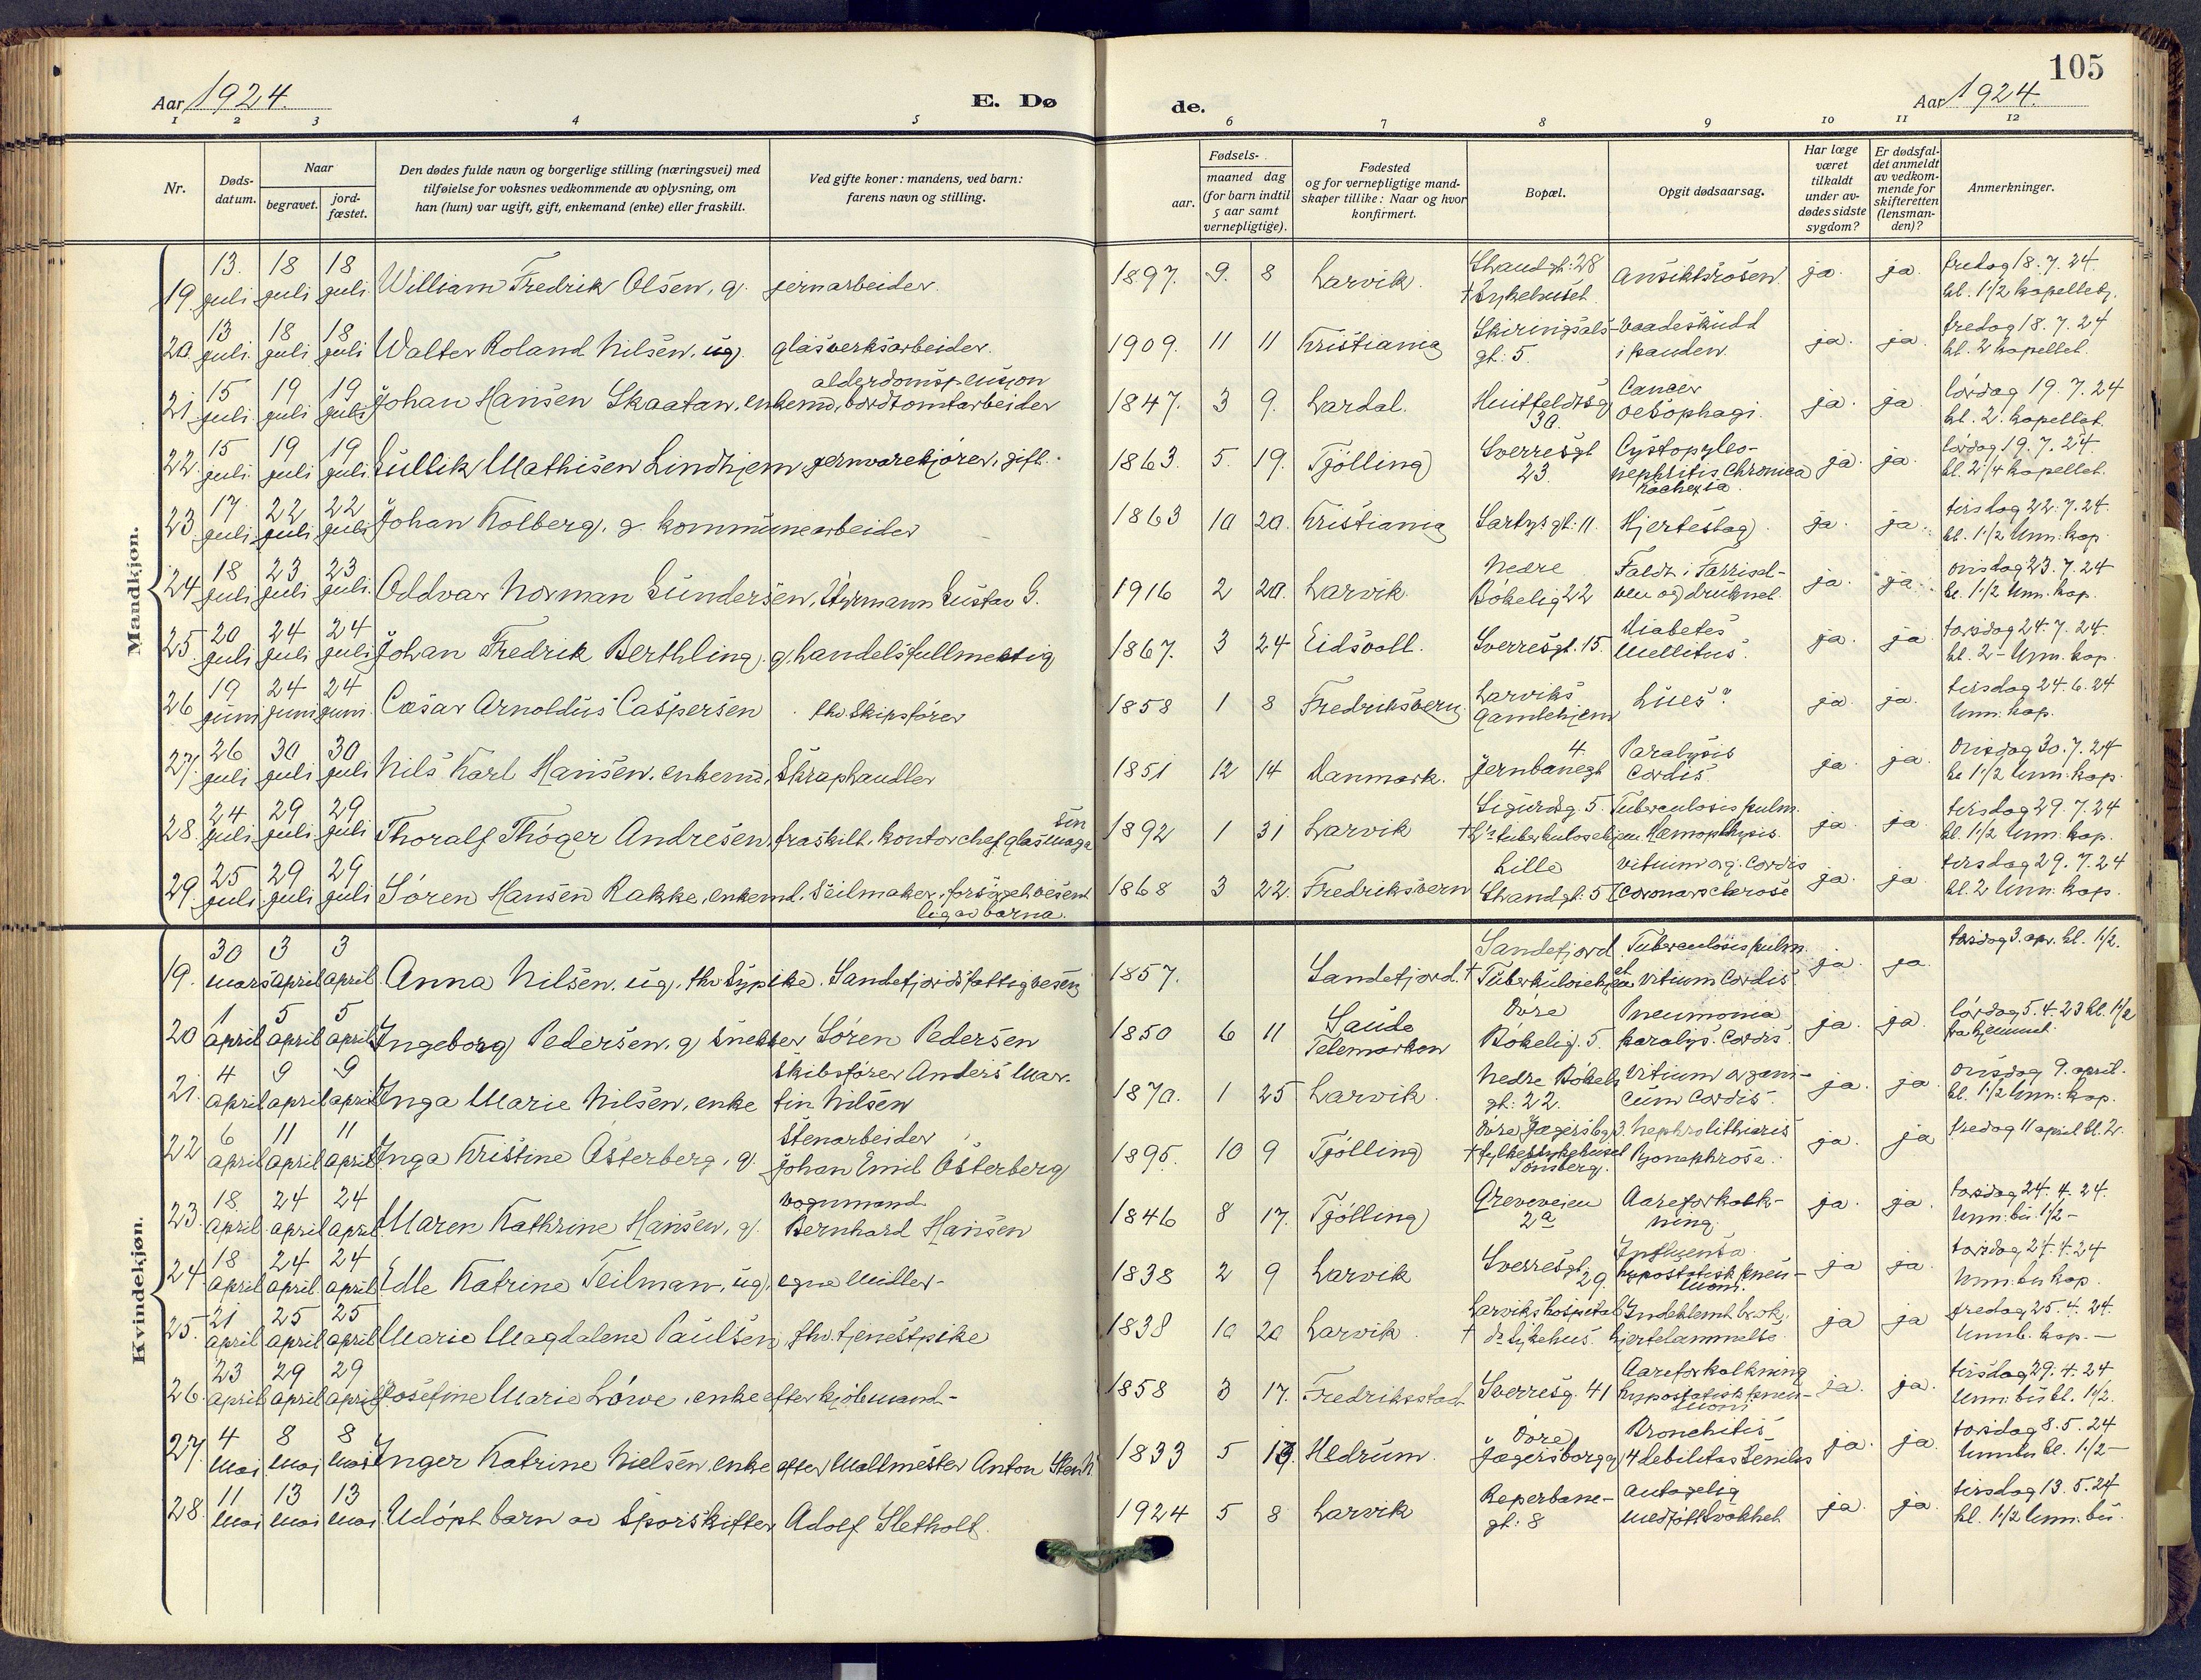 105
Aar 1924.
E. Dø
de.
Aar 1924.
1 2 3 4 5 6 7 8 9 10 11 12
Nr.
Døds-
datum.
Naar
begravet.
jord-
fæstet.
Den dødes fulde navn og borgerlige stilling (næringsvei) med
tilføielse for voksnes vedkommende av oplysning, om
han (hun) var ugift, gift, enkemand (enke) eller fraskilt.
Ved gifte koner: mandens, ved barn:
farens navn og stilling.
Fødsels-
aar.
maaned dag
(for barn indtil
5 aar samt
vernepligtige).
Fødested
og for vernepligtige mand-
skaper tillike: Naar og hvor
konfirmert.
Bopæl.
Opgit dødsaarsag.
Har læge
været
tilkaldt
under av-
dødes sidste
sygdom?
Er dødsfal-
det anmeldt
av vedkom-
mende for
skifteretten
(lensman-
den)?
Anmerkninger.
Mandkjøn.
19. 13. juli 18 juli 18 juli. William Fredrik Olsen, g. jernarbeider. 1897. 9. 8 Larvik. Strandgt: 28 † Sykehuset. Ansiktsrosen ja. ja. fredag 18.7.24. kl. 1 1/2 kapellet.
20. 13 juli. 18 juli 18 juli Walter Roland Nilsen, ug. glasverksarbeider. 1909. 11 11 Kristiania Skiringsals- gt: 5. Vaadeskudd i panden. ja. ja. fredag 18.7.24 kl. 2 kapellet.
21. 15 juli. 19 juli 19 juli Johan Hansen Skaatan, enkem., bordtomtarbeider alderdomspension 1847. 3 9. Lardal. Huitfeldtsg 30. Cancer oesophagi. ja. ja. lørdag 19.7.24 kl. 2 kapellet.
22. 15 juli. 19 juli 19 juli. Gullik Mathisen Lindhjem jernvarekjører, gift. 1863. 5. 19. Tjølling Sverresgt 23. Cystopyleo- nephritis Chronica Kachexia. ja. ja. lørdag 19.7.24. kl. 2 1/4 kapellet.
23. 17. juli. 22 juli 22 juli Johan Kolberg, g. kommunearbeider 1863 10 20. Kristiania gt: 11. Hjerteslag. ja. ja. tirsdag 22.7.24. kl. 1 1/2 Unn. kap.
24. 18 juli 23 juli 23 juli. Oddvar Norman Gundersen, Styrmann Gustav G. 1916 2 20. Larvik. Nedre Bøkelig 22 Faldt i Farrisel- ven og druknet. ja. ja. onsdag 23.7.24 kl. 1 1/2 Unn. kap.
25. 20 juli 24 juli 24 juli Johan Fredrik Berthling, g. handelsfullmektig 1867. 3 24 Eidsvoll. Sverresgt. 15. Diabetes Mellitus. ja. ja torsdag 24.7.24. kl. 2 - Unn. kap.
26 19 juni 24 juni 24 juni. Cæsar Arnoldus Caspersen fhv Skipsfører 1858 1 8 Fredriksvern Larviks Gamlehjem Lues? ja. ja. tirsdag 24.6.24 Unn. kap.
27. 26 juli 30 juli 30 juli Nils Karl Hansen, enkem., Skraphandler 1851 12 14 Danmark. Jernbanegt 4. Paralysis Cordis ja. ja. onsdag 30.7.24 kl 1 1/2 Unn. kap.
28. 24 juli 29 juli 29 juli Thoralf Thøger Andresen, fraskilt, kontorchef glasmaga sin 1892 1 31 Larvik Sigurdsg. 5. † tuberkulosehjem Tuberculosis pulm. Hæmopthysis. ja. ja. tirsdag 29.7.24 kl. 1 1/2 Unn. kap.
29. 25 juli 29 juli 29 juli Søren Hansen Rakke, enkemd, Seilmaker, forsørget vesent lig av barna. 1868 3 22. Fredriksvern Lille Strandgt: 5 Vitium org. Cordis (Coronarsclerose ja. ja. tirsdag 29.7.24 kl. 2 Unn. kap.
Kvindekjøn.
19. 30 mars 3 april 3 april. Anna Nilsen, ug, fhv Sypike. Sandefjords fattigvesen 1857. Sandefjord. Sandefjord † Tuberkulosehjem Tuberculosis pulm. et Vitium Cordis ja. ja. torsdag 3. apr. kl. 1 1/2.
20 1 april 5 april 5 april Ingeborg Pedersen, g Snekker Søren Pedersen 1850 6 11 Saude Telemarken Øvre Bøkelig. 5. Pneumonia paralys. Cordis. ja. ja. lørdag 5.4.23 kl. 1 1/2 fra hjemmet.
21. 4 april 9 april 9 april Inga Marie Nilsen, enke Skibsfører Anders Mar- tin Nilsen 1870. 1 25 Larvik. Nedre Bøkeli gt: 22. Vitium organi- cum Cordis. ja. ja. onsdag 9. april. kl. 1 1/2 Unn: kap.
22 6 april 11 april 11 april Inga Kristine Østerberg, g. Stenarbeider Johan Emil Østerberg 1895. 10 9 Tjølling Øvre Jægersbg 3. † fylkessykehuset Tønsberg. Nephrolithiasis Pyonephrose. ja. ja fredag 11 april kl. 2.
23. 18. april 24 april 24 april. Maren Kathrine Hansen, g. vognmand Bernhard Hansen 1846 8 17. Tjølling Greveveien 2a Aareforkalk- ning. ja. ja. torsdag 24.4.24. Unn. bu. 1 1/2 -
24. 18 april 24 april 24 april Edle Katrine Teilman, ug. egne Midler- 1838 2 9 Larvik Sverresgt. 29. Influensa hypostatisk pneu- moni. ja ja. torsdag 24.4.24 Unn. bu kap.
25. 21 april 25 april 25 april Marie Magdalene Paulsen fhv. tjenestpike 1838 10 20 Larvik. Larviks hospital † ds sykehus. Indeklemt brok, hjertelammelse. ja ja fredag 25.4.24. Unnb. kap. -
26. 23 april 29 april 29 april Josefine Marie Løwe, enke efter kjøbmand- 1858 3 17. Fredriksstad Sverresg. 41 Aareforkalkning hypostatisk pneu- moni ja. ja. tirsdag 29.4.24 Unn. bu kl. 1 1/2.
27. 4 mai 8 mai 8 mai Inger Katrine Nielsen enke efter Maltmester Anton Sten N. 1833 5 Hedrum. Øvre Jægersborgg 4 Bronchitis debilitas senilis ja. ja. torsdag 8.5.24 Unnbu kl. 1 1/2 -
28. 11 mai 13 mai 13 mai Udøpt barn av Sporskifter Adolf Sletholt. 1924 5 8 Larvik Reperbane- gt: 8 Antagelig medfødt svakhet ja. ja. tirsdag 13.5.24 kl. 1 1/2 Unn. bu.